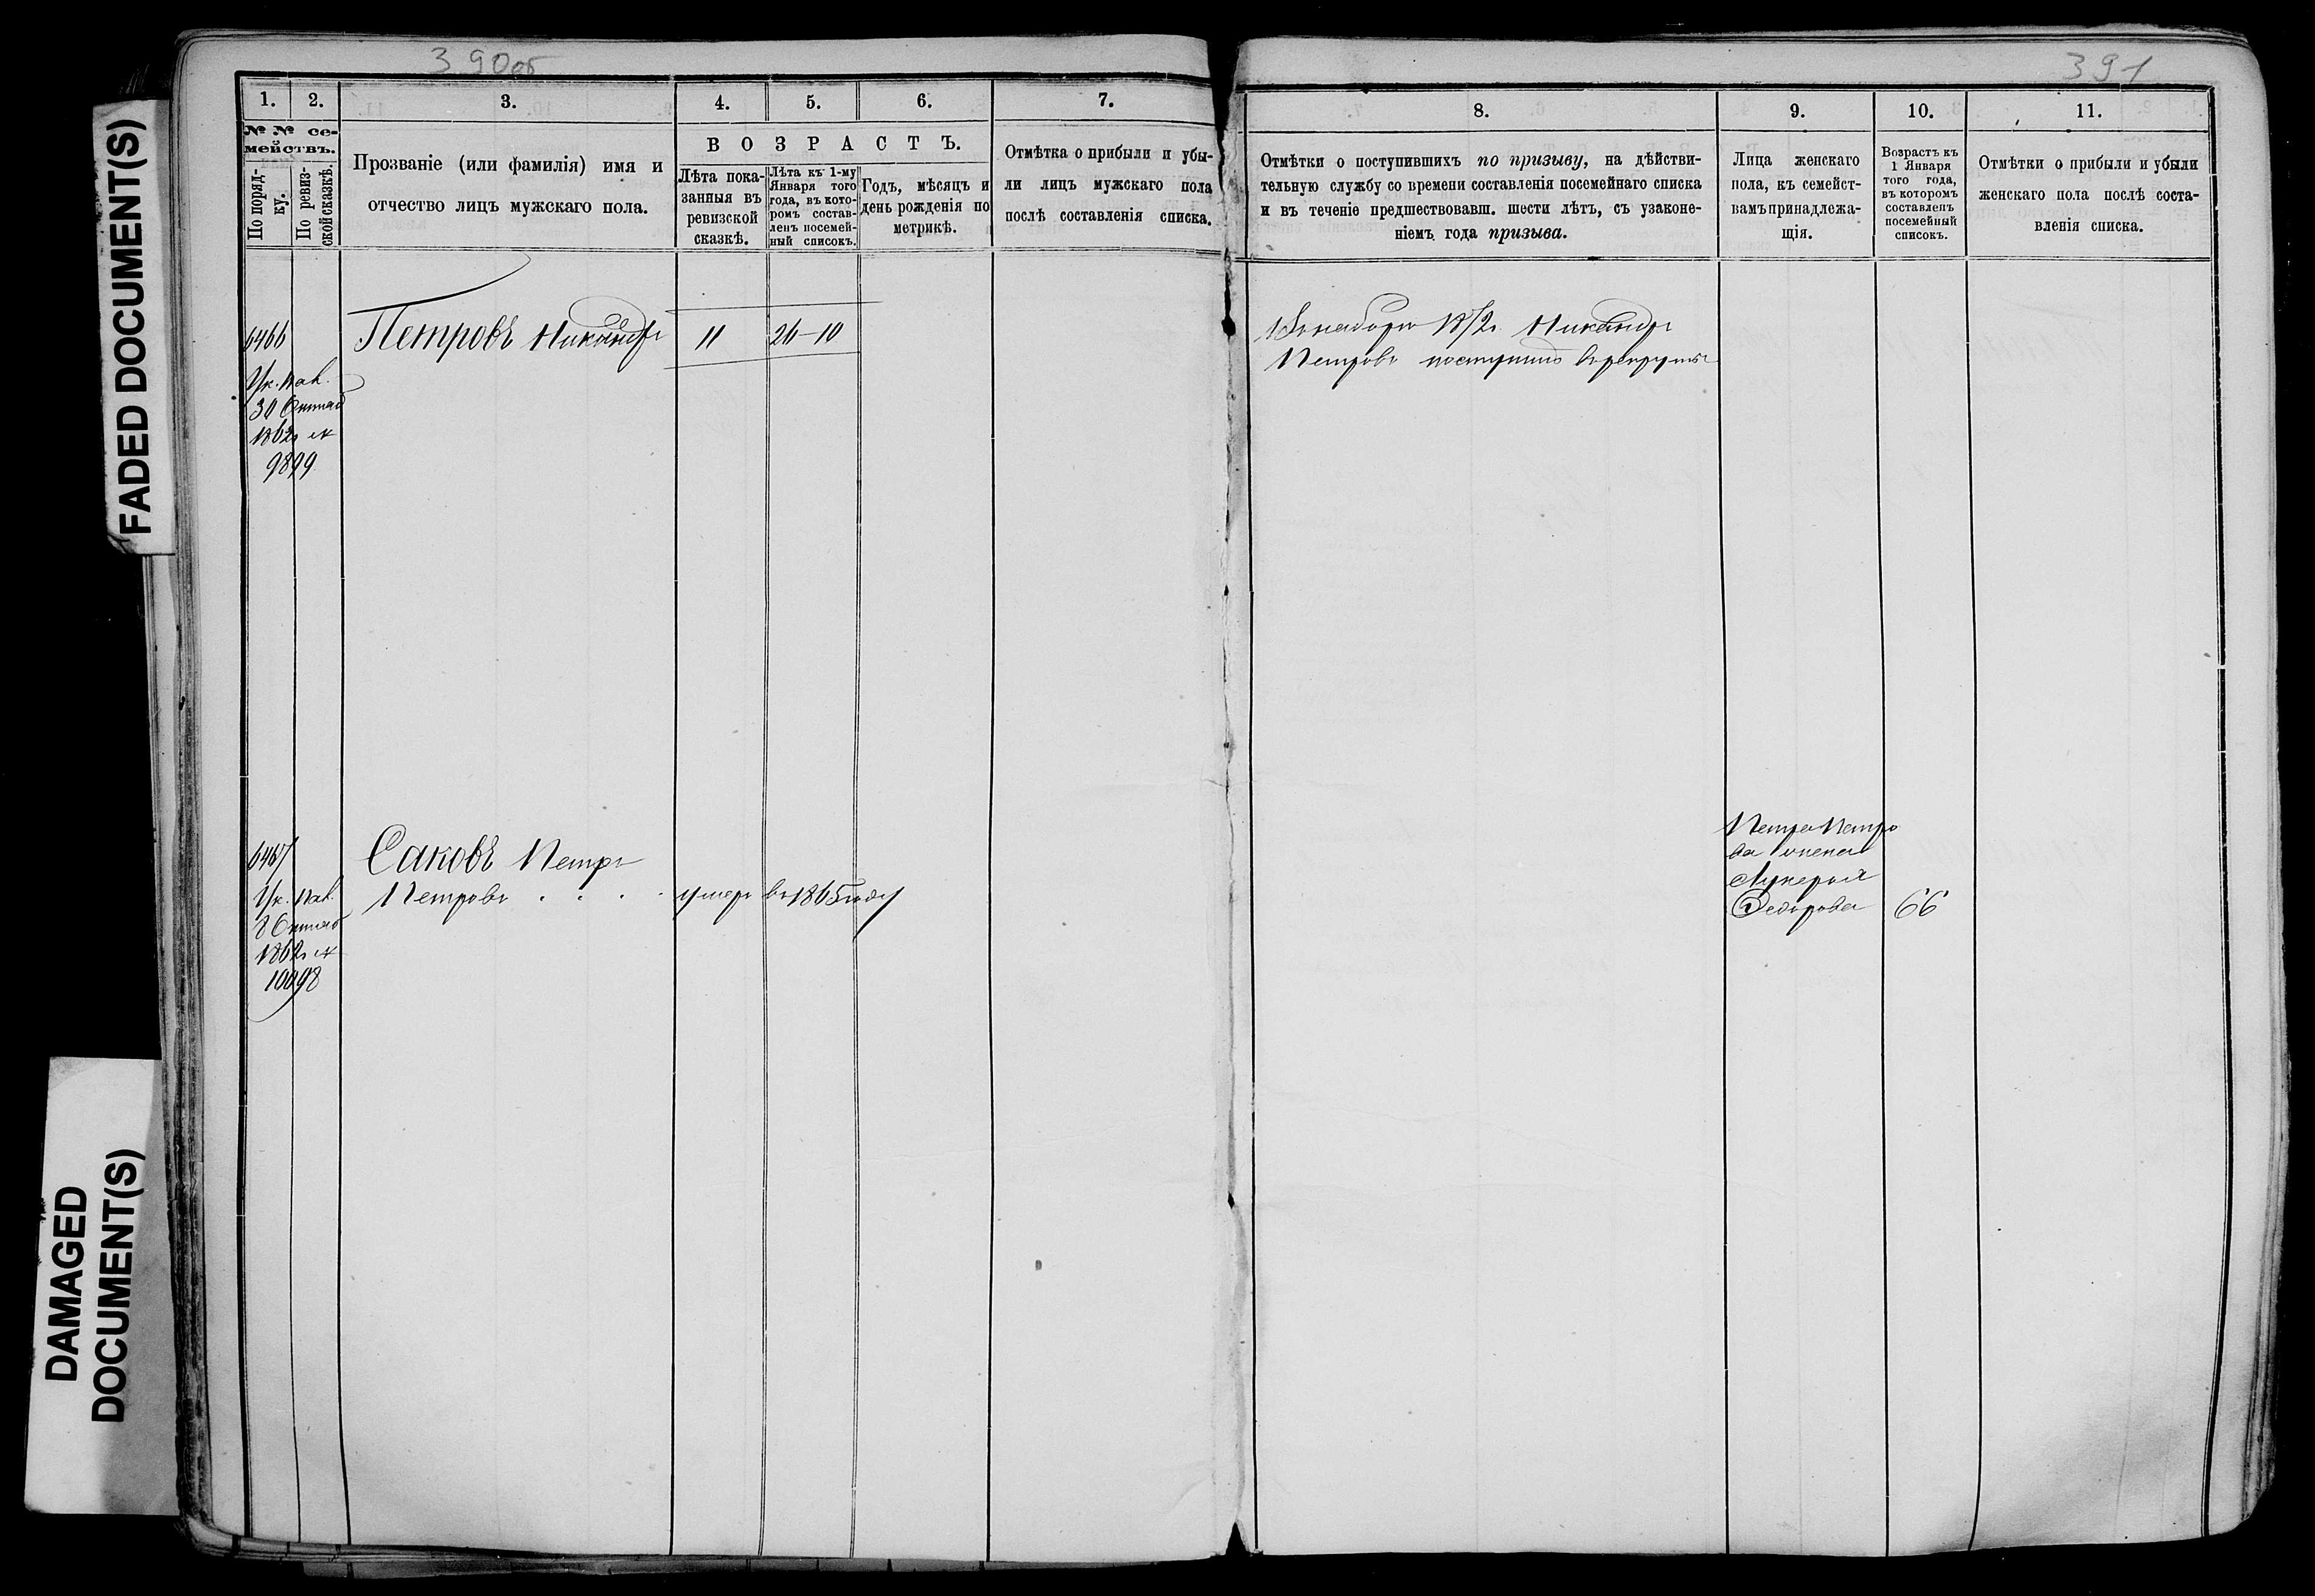 390об
391
FADED DOCUMENT(S)
DAMAGED
DOCUMENT(S)
1.
2.
3.
4.
5.
6.
7.
№ № се-
мействъ.
По поряд-
ку.
По ревиз-
ской сказкѣ.
Прозваніе (или фамилія) имя и
отчество лицъ мужскаго пола.
ВОЗРАСТЪ.
Лѣта пока-
занныя въ
ревизской
сказкѣ.
Лѣта къ 1-му
Января того
года, въ кото-
ромъ состав-
ленъ посемей-
ный списокъ.
Годъ, мѣсяцъ и
день рожденія по
метрикѣ.
Отмѣтка о прибыли и убы-
ли лицъ мужскаго пола
послѣ составленія списка.
8.
9.
10.
11.
Отмѣтки о поступившихъ по призыву, на дѣйстви-
тельную службу со времени составленія посемейнаго списка
и въ теченіе предшествовавш. шести лѣтъ, съ узаконе-
ніемъ года призыва.
Лица женскаго
пола, къ семейст-
вамъ принадлежа-
щія.
Возрастъ къ
1 Января
того года,
въ которомъ
составленъ
посемейный
списокъ.
Отмѣтки о прибыли и убыли
женскаго пола послѣ соста-
вленія списка.
6466
Петровъ Никандръ
11
26–10
Ук. Пал.
30 Октяб
1862 г №
9899
Никандръ
Петровъ поступилъ въ рекруты
6467
Саковъ Петръ
Петровъ . . . . умеръ въ 1865 году
Ук. Пал.
8 Октяб
1862 г №
10098
Петра Петро
ва жена
Лукерья
Федорова
66